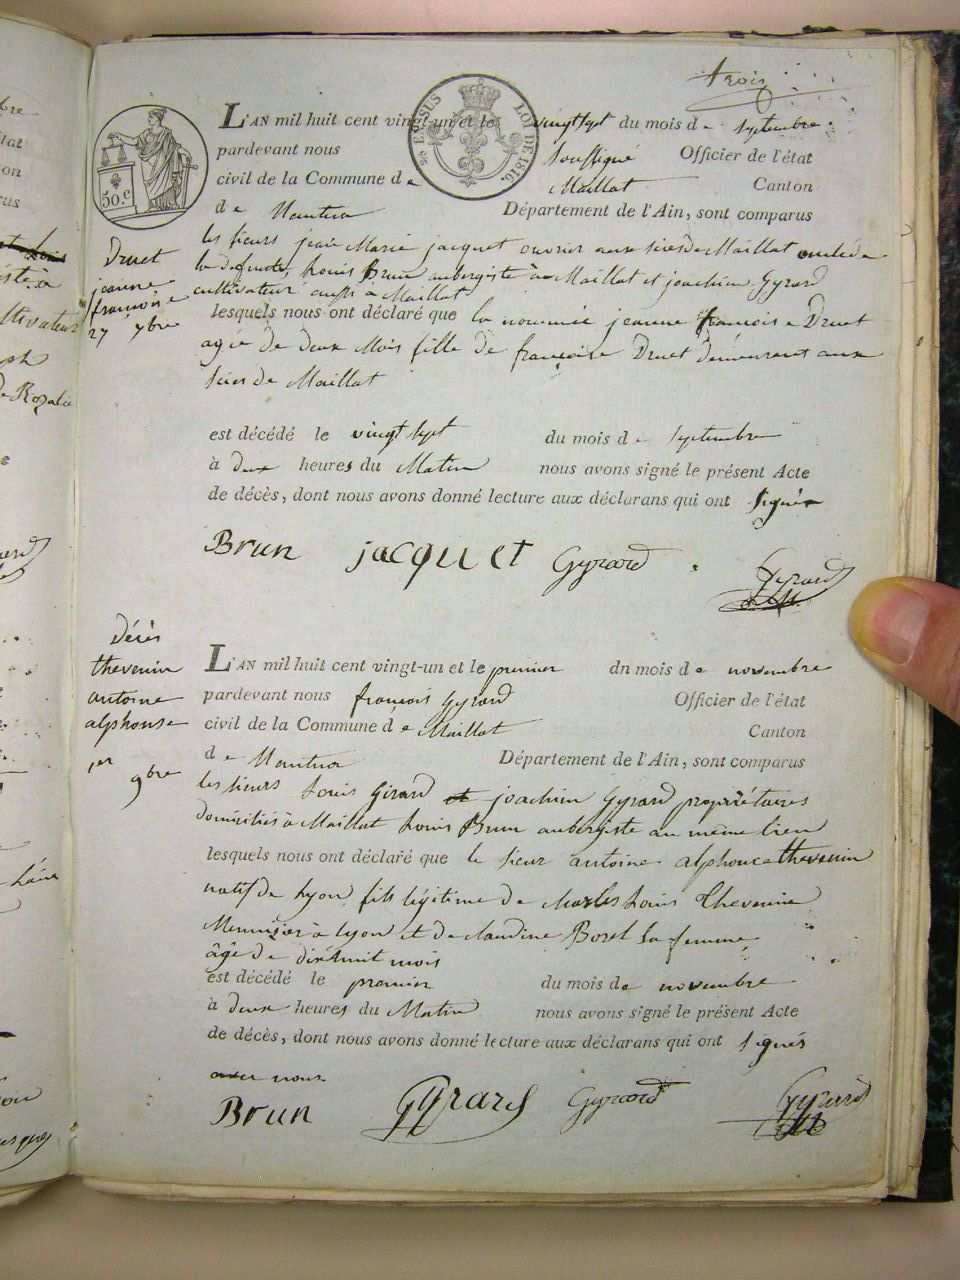 trois
50.C
EN SUS
LOI DE 1816.
L'AN mil huit cent vingt-un et le vingt sept du mois de septembre
pardevant nous soussigné Officier de l'état
civil de la Commune de Maillat Canton
de Nantua Département de l'Ain, sont comparus
les sieurs jean Marie jacquet ouvrier aux sies de Maillat oncle de
la défunte, Louis Brun aubergiste à Maillat et joachim Gyrard
cultivateur aussi à Maillat
Druet
jeanne
françoise
27 7bre
lesquels nous ont déclaré que la nommée jeanne françoise Druet
agée de deux Mois fille de françoise Druet demeurant aux
sies de Maillat
est décédé le vingt sept du mois de septembre
à deux heures du Matin nous avons signé le présent Acte
de décès, dont nous avons donné lecture aux déclarans qui ont signés
Brun jacquet Gyrard Gyrard
Décès
thevenin
antoine
alphonse
1er 9bre
L'AN mil huit cent vingt-un et le premier dn mois de novembre
pardevant nous françois Gyrard Officier de l'état
civil de la Commune de Maillat Canton
de Nantua Département de l'Ain, sont comparus
les sieurs Louis Girard et joachim Gyrard propriétaires
domiciliés à Maillat Louis Brun aubergiste au même lieu
lesquels nous ont déclaré que le sieur antoine alphonce thevenin
natif de Lyon fils légitime de charles Louis Thevenin
Menuisier à Lyon et de claudine Borel sa femme
âgé de dixhuit mois
est décédé le premier du mois de novembre
à deux heures du Matin nous avons signé le présent Acte
de décès, dont nous avons donné lecture aux déclarans qui ont signés
avec nous
Brun Gyrard Gyrard Gyrard